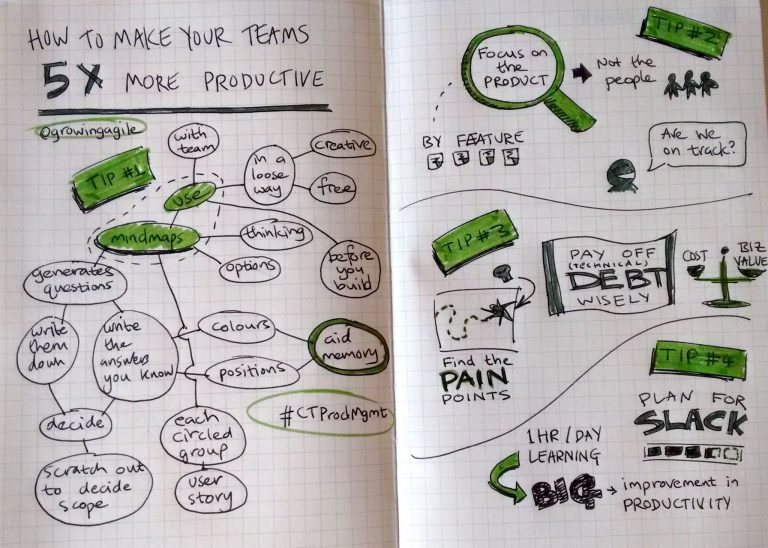 HOW TO MAKE YOUR TEAMS
5X MORE PRODUCTIVE
@growingagile
TIP #1
with
team
use
in a
loose
way
creative
free
mindmaps
thinking
options
before
you
build
generates
questions
write
them
down
write
the
answers
you know
colours
positions
aid
memory
decide
scratch out
to decide
scope
each
circled
group
user
story
#CTProdMgmt
TIP #2
Focus on
the
PRODUCT
Not the
people
BY FEATURE
Are we
on track?
TIP #3
Find the
PAIN
POINTS
PAY OFF
(TECHNICAL)
DEBT
WISELY
COST
BIZ
VALUE
TIP #4
PLAN FOR
SLACK
1HR/DAY
LEARNING
BIG
improvement in
PRODUCTIVITY